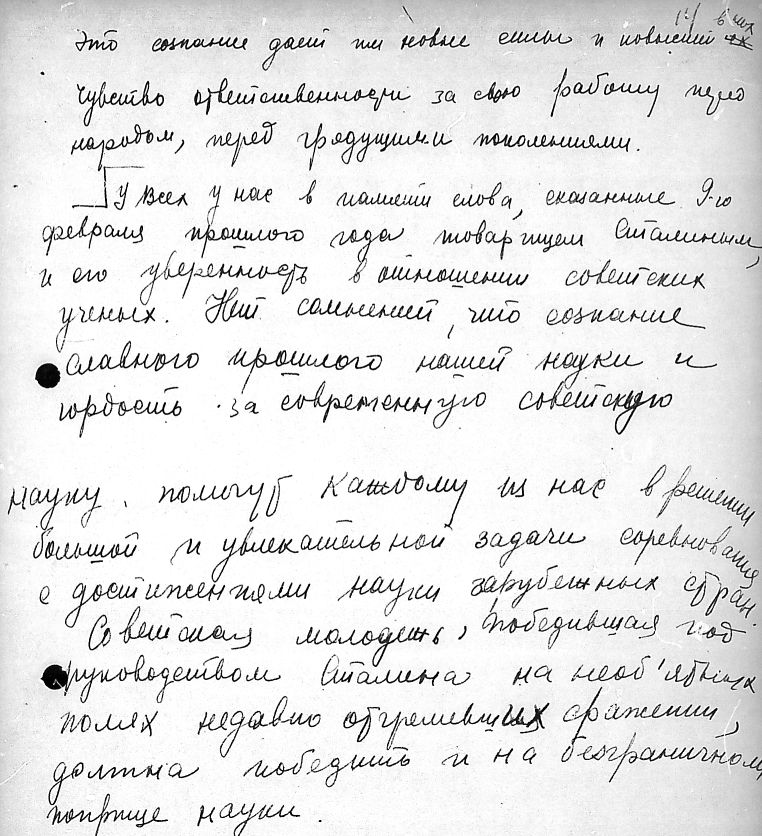 в них
Это сознание даст им новые силы и повысит их
чувство ответственности за свою работу перед
народом, перед грядущими поколениями.
У всех у нас в памяти слова, сказанные 9-го
февраля прошлого года товарищем Сталиным,
и его уверенность в отношении советских
ученых. Нет сомнений, что сознание
славного прошлого нашей науки и
гордость за современную советскую
науку помогут каждому из нас в решении
большой и увлекательной задачи соревнования
с достижениями науки зарубежных стран.
Советская молодежь, победившая под
руководством Сталина на необ'ятных
полях недавно отгремевших сражений,
должна победить и на безграничном
поприще науки.